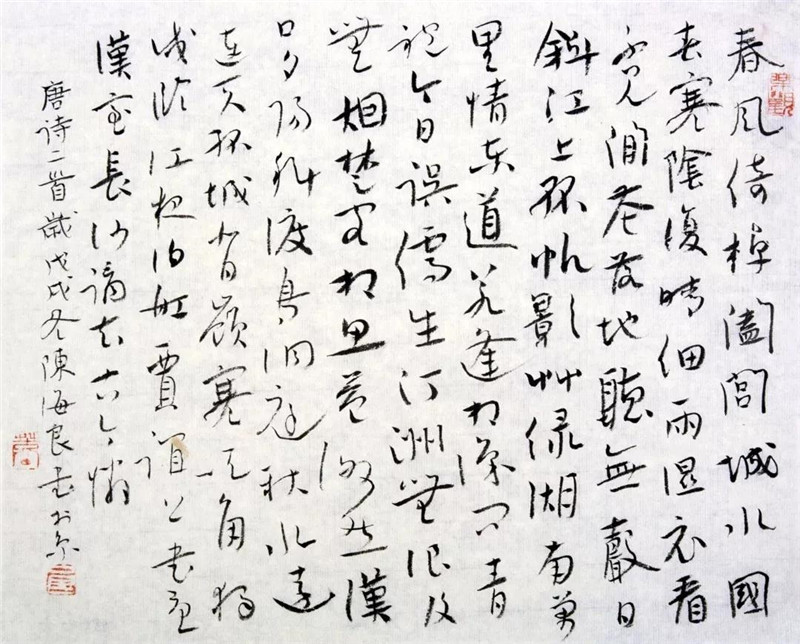 春風倚棹闔閭城水國
春寒陰復晴細雨濕衣看
不見閒花落地聽無聲日
斜江上孤帆影艸綠湖南萬
里情東道若逢相識問青
袍今日誤儒生汀洲無浪復
無烟楚客相思益渺然漢
口夕陽斜渡鳥洞庭秋水遠
連天孤城背嶺寒吹角獨
戍臨江夜泊船賈誼上書憂
漢室長沙謫去古今憐
唐詩二首歲戊戌冬陳海良書於京